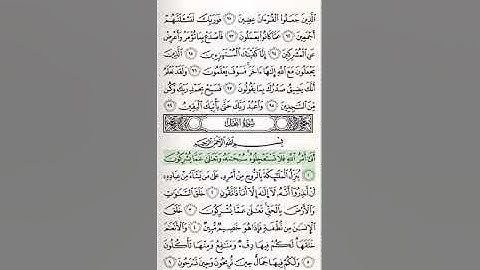 ٱلَّذِينَ جَعَلُوا۟ ٱلْقُرْءَانَ عِضِينَ ٩١ فَوَرَبِّكَ لَنَسْـَٔلَنَّهُمْ
أَجْمَعِينَ ٩٢ عَمَّا كَانُوا۟ يَعْمَلُونَ ٩٣ فَٱصْدَعْ بِمَا تُؤْمَرُ وَأَعْرِضْ
عَنِ ٱلْمُشْرِكِينَ ٩٤ إِنَّا كَفَيْنَـٰكَ ٱلْمُسْتَهْزِءِينَ ٩٥ ٱلَّذِينَ
يَجْعَلُونَ مَعَ ٱللَّهِ إِلَـٰهًا ءَاخَرَ فَسَوْفَ يَعْلَمُونَ ٩٦ وَلَقَدْ نَعْلَمُ
أَنَّكَ يَضِيقُ صَدْرُكَ بِمَا يَقُولُونَ ٩٧ فَسَبِّحْ بِحَمْدِ رَبِّكَ وَكُن
مِّنَ ٱلسَّـٰجِدِينَ ٩٨ وَٱعْبُدْ رَبَّكَ حَتَّىٰ يَأْتِيَكَ ٱلْيَقِينُ ٩٩
سُورَةُ النَّحْلِ
بِسْمِ ٱللَّهِ ٱلرَّحْمَـٰنِ ٱلرَّحِيمِ
أَتَىٰٓ أَمْرُ ٱللَّهِ فَلَا تَسْتَعْجِلُوهُ سُبْحَـٰنَهُۥ وَتَعَـٰلَىٰ عَمَّا يُشْرِكُونَ
١ يُنَزِّلُ ٱلْمَلَـٰٓئِكَةَ بِٱلرُّوحِ مِنْ أَمْرِهِۦ عَلَىٰ مَن يَشَآءُ مِنْ عِبَادِهِۦٓ
أَنْ أَنذِرُوٓا۟ أَنَّهُۥ لَآ إِلَـٰهَ إِلَّآ أَنَا۠ فَٱتَّقُونِ ٢ خَلَقَ ٱلسَّمَـٰوَٰتِ
وَٱلْأَرْضَ بِٱلْحَقِّ تَعَـٰلَىٰ عَمَّا يُشْرِكُونَ ٣ خَلَقَ
ٱلْإِنسَـٰنَ مِن نُّطْفَةٍ فَإِذَا هُوَ خَصِيمٌ مُّبِينٌ ٤ وَٱلْأَنْعَـٰمَ
خَلَقَهَا لَكُمْ فِيهَا دِفْءٌ وَمَنَـٰفِعُ وَمِنْهَا تَأْكُلُونَ
٥ وَلَكُمْ فِيهَا جَمَالٌ حِينَ تُرِيحُونَ وَحِينَ تَسْرَحُونَ ٦